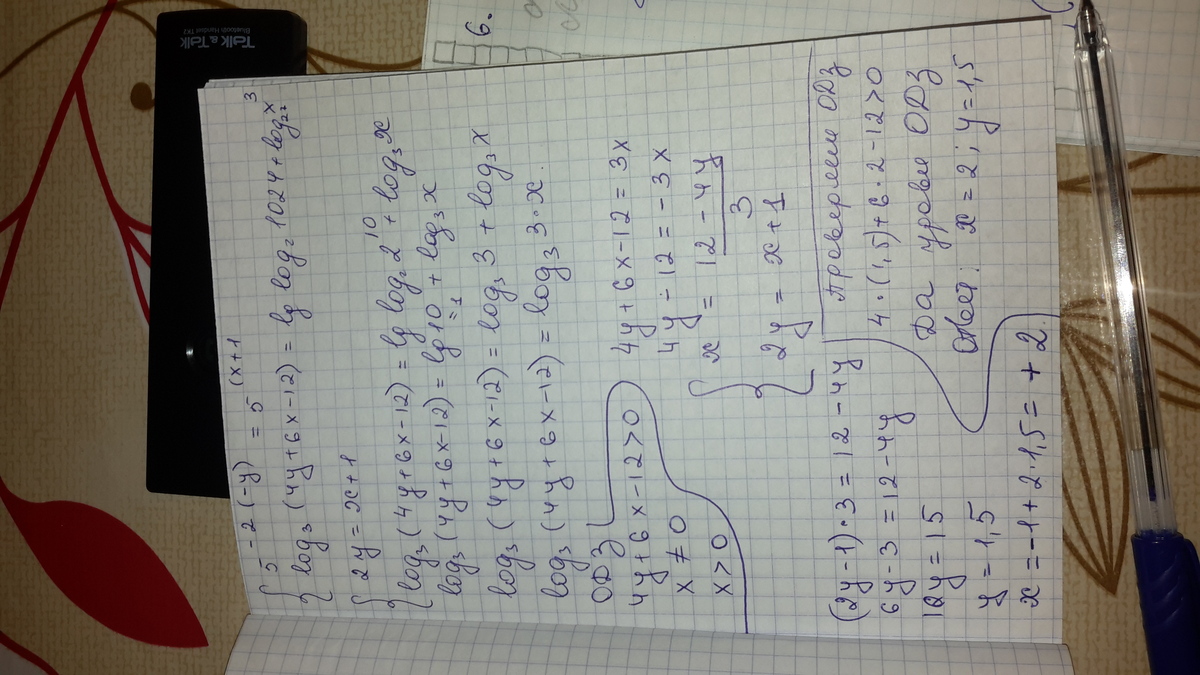 Talk & Talk
Bluetooth Handset TK3
6.
{ 5^{-2(-y)} = 5^{(x+1)}
log₃ (4y+6x-12) = lg log₂ 1024 + log₂₇ x³
{ 2y = x+1
log₃ (4y+6x-12) = lg log₂ 2¹⁰ + log₃ x
log₃ (4y+6x-12) = lg 10 + log₃ x
=1
log₃ (4y+6x-12) = log₃ 3 + log₃ x
log₃ (4y+6x-12) = log₃ 3·x.
ОДЗ
4y+6x-12>0
x ≠ 0
x>0
4y+6x-12=3x
4y-12=-3x
{ x = (12-4y)/3
2y = x+1
(2y-1)·3=12-4y
6y-3=12-4y
10y=15
y=1,5
x=-1+2·1,5=+2.
Проверяем ОДЗ
4·(1,5)+6·2-12>0
Да уровем ОДЗ
Ответ: x=2; y=1,5